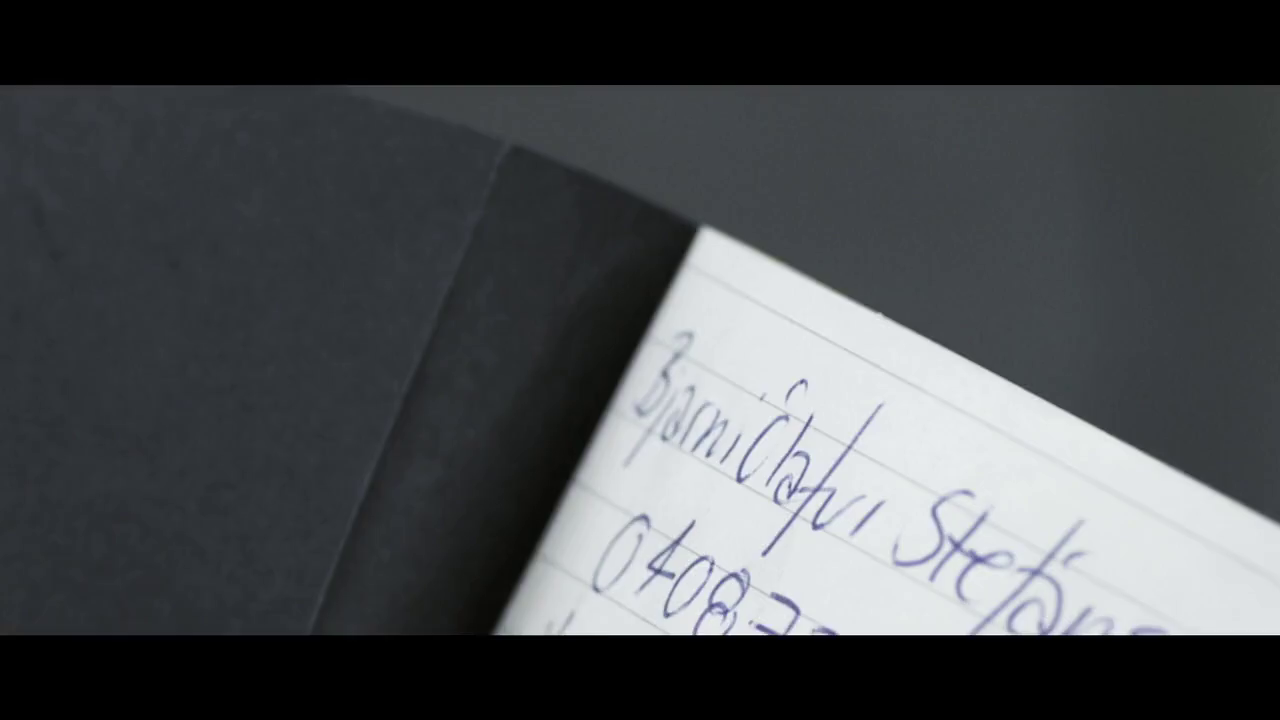 Bjarni Ólafur Stefáns
04087